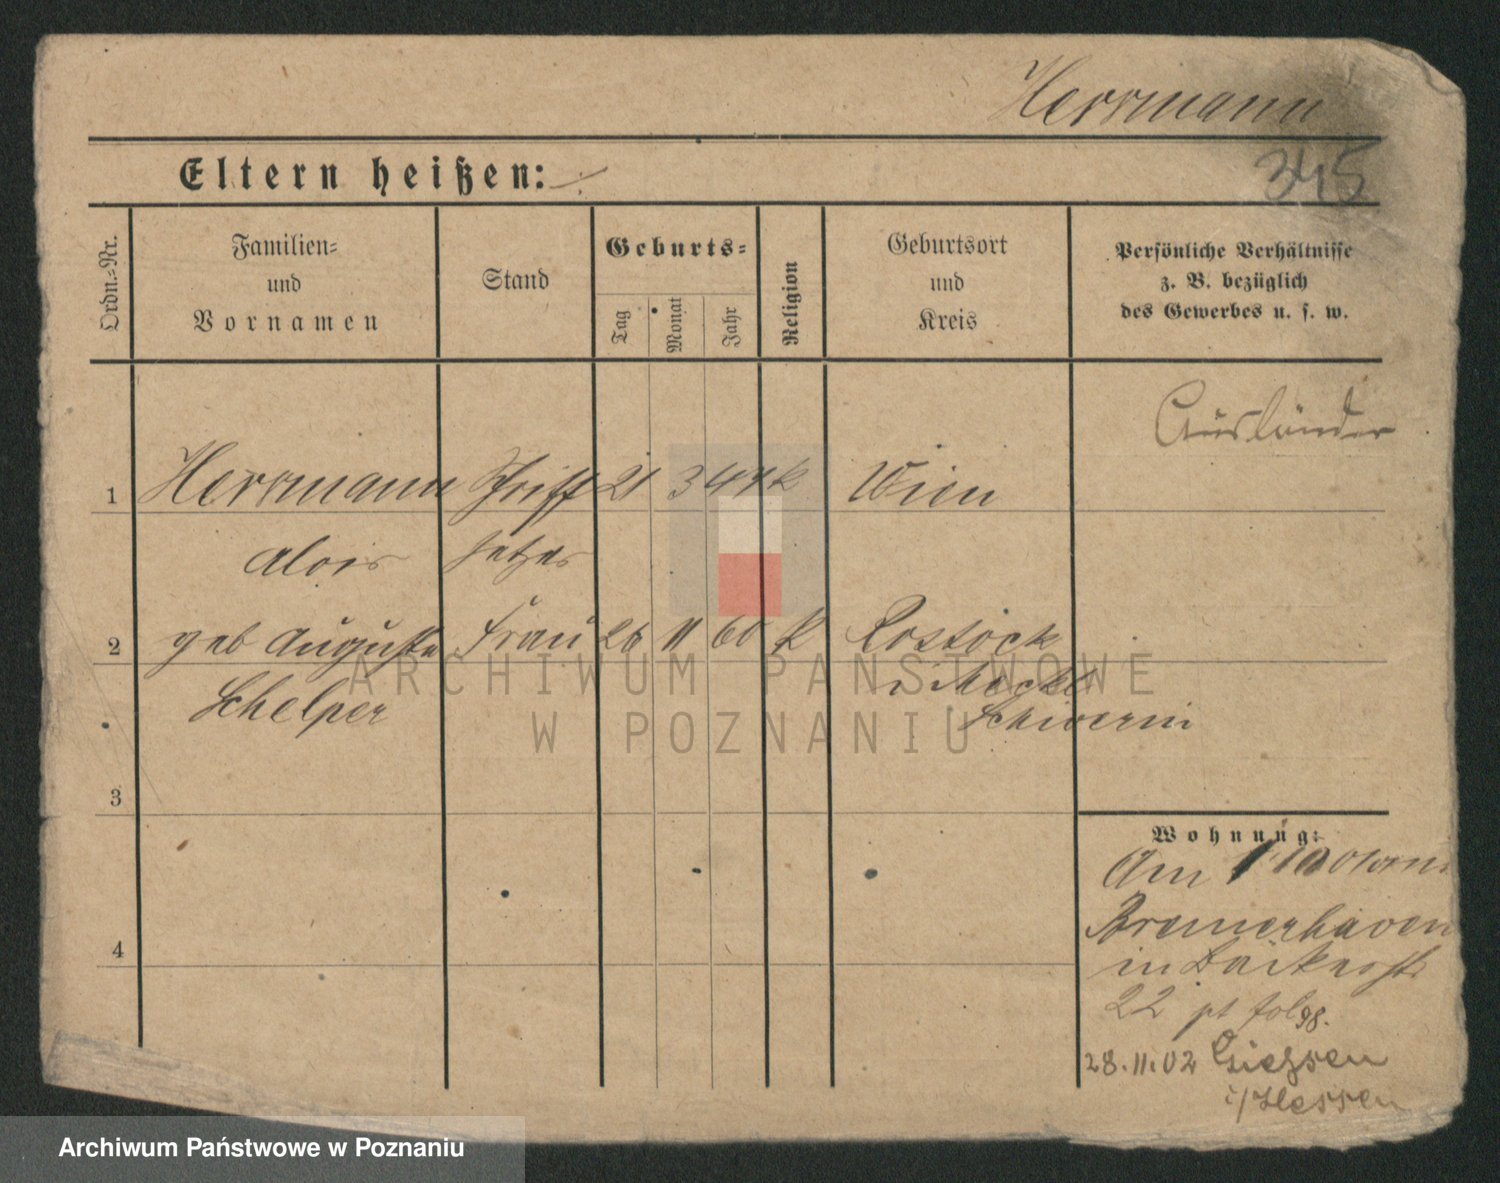 Herrmann
345
Eltern heißen:
Ordn.-Nr.
Familien-
und
Vornamen
Stand
Geburts-
Tag
Monat
Jahr
Religion
Geburtsort
und
Kreis
Persönliche Verhältnisse
z. B. bezüglich
des Gewerbes u. s. w.
Ausländer
1 Herrmann Schrift 21 3 44 k Wien
Alois setzer
2 geb Auguste Frau 26 11 60 k Rostock
Schelper i Meckl
Schwerin
3
Wohnung:
Am
Bremerhaven
in
4
22 pt fol 98.
28.11.02 Giessen
i/Hessen
ARCHIWUM PAŃSTWOWE
W POZNANIU
Archiwum Państwowe w Poznaniu